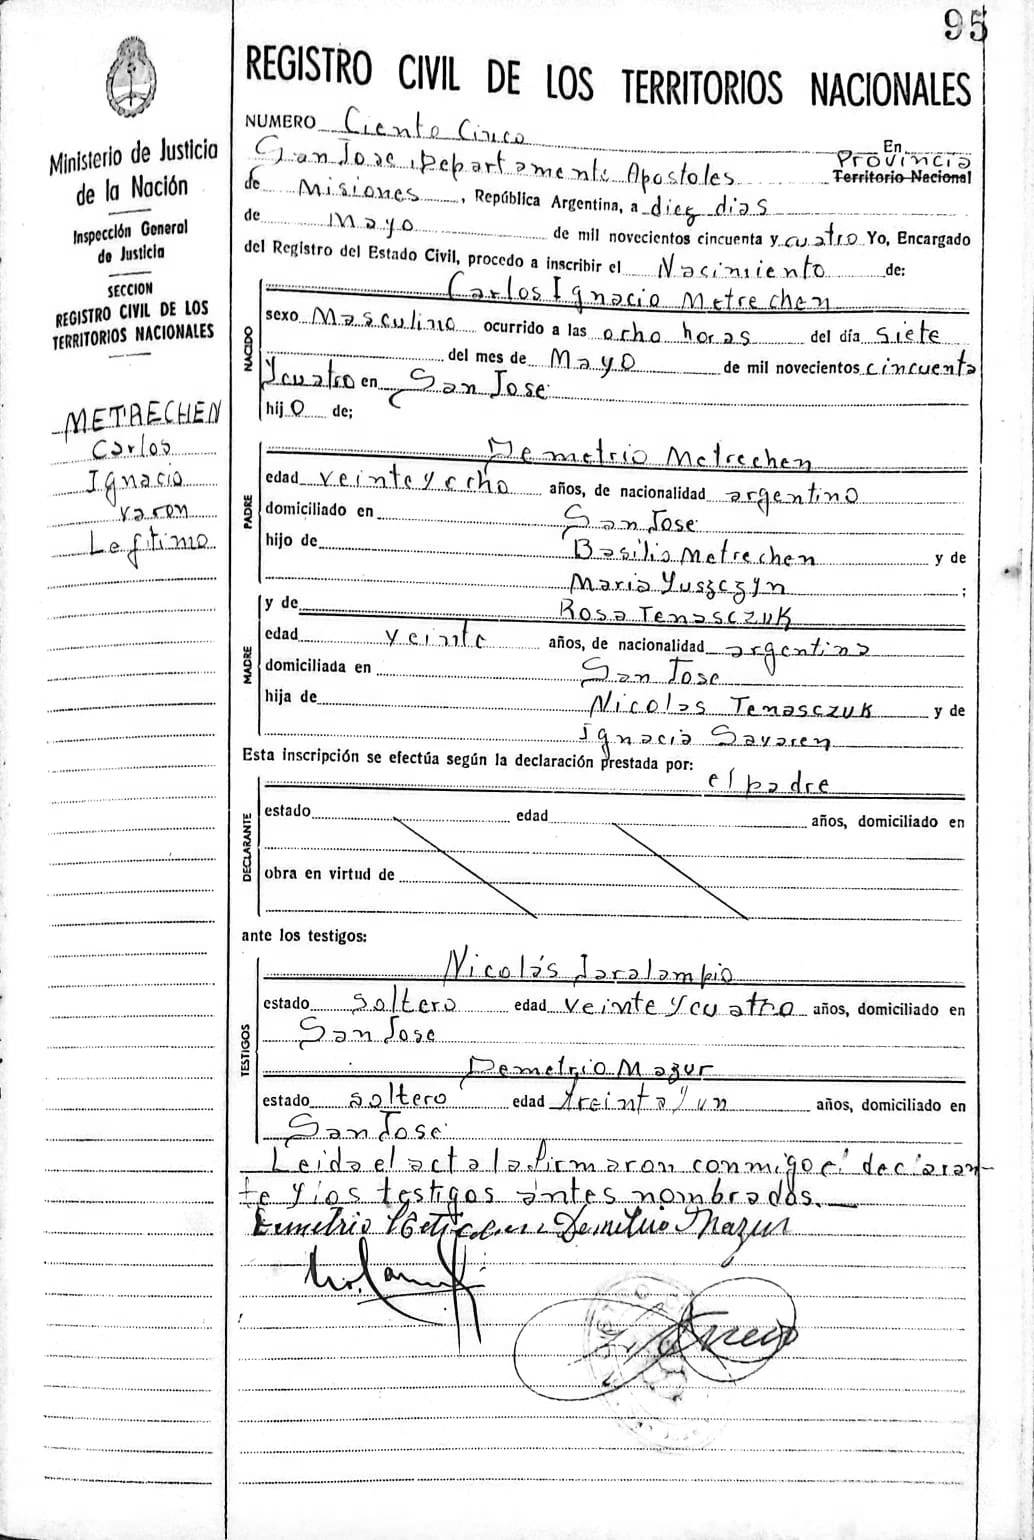 95
REGISTRO CIVIL DE LOS TERRITORIOS NACIONALES
Ministerio de Justicia
de la Nación
Inspección General
de Justicia
SECCION
REGISTRO CIVIL DE LOS
TERRITORIOS NACIONALES
METRECHEN
Carlos
Ignacio
varon
Legitimo
NUMERO Ciento Cinco En
San Jose, Departamento Apostoles Provincia
Territorio Nacional
de Misiones, República Argentina, a diez dias
de Mayo de mil novecientos cincuenta y cuatro Yo, Encargado
del Registro del Estado Civil, procedo a inscribir el Nacimiento de:
NACIDO
Carlos Ignacio Metrechen
sexo Masculino ocurrido a las ocho horas del día siete
del mes de Mayo de mil novecientos cincuenta
y cuatro en San Jose
hijo de;
PADRE
Demetrio Metrechen
edad veinte y ocho años, de nacionalidad argentino
domiciliado en San Jose
hijo de Basilio Metrechen y de
Maria Yuszczyn ;
MADRE
y de Rosa Tenasczuk
edad veinte años, de nacionalidad argentina
domiciliada en San Jose
hija de Nicolas Tenasczuk y de
Ignacia Savaren
Esta inscripción se efectúa según la declaración prestada por:
DECLARANTE
el padre
estado edad años, domiciliado en
obra en virtud de
ante los testigos:
TESTIGOS
Nicolás Jaralampio
estado soltero edad veinte y cuatro años, domiciliado en
San Jose
Demetrio Mazur
estado soltero edad treinta y un años, domiciliado en
San Jose
Leida el acta la firmaron conmigo el declaran-
te y los testigos antes nombrados.
Demetrio Mazur